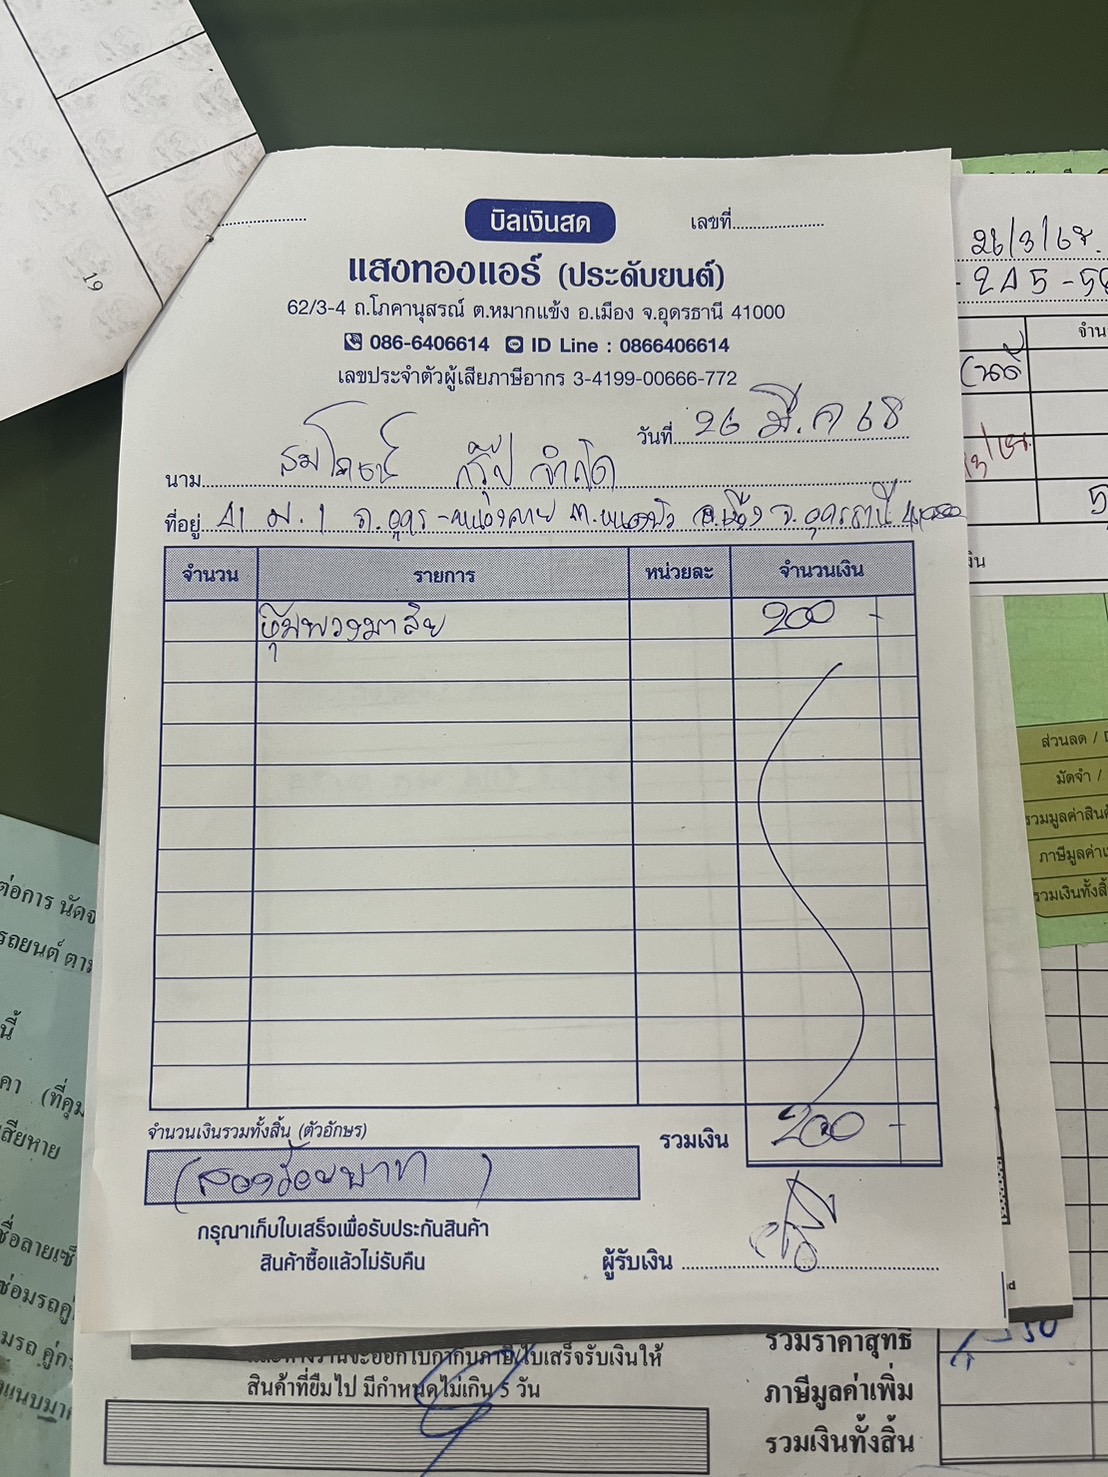 บิลเงินสด
เลขที่
แสงทองแอร์ (ประดับยนต์)
62/3-4 ถ.โภคานุสรณ์ ต.หมากแข้ง อ.เมือง จ.อุดรธานี 41000
086-6406614 ID Line : 0866406614
เลขประจำตัวผู้เสียภาษีอากร 3-4199-00666-772
วันที่ 26 มี.ค 68
นาม กรุ๊ป จำกัด
ที่อยู่ ม.1 ถ.อุดร-หนองคาย ต.หนองบัว อ.เมือง จ.อุดรธานี 41000
จำนวน รายการ หน่วยละ จำนวนเงิน
หุ้มพวงมาลัย 200 -
จำนวนเงินรวมทั้งสิ้น (ตัวอักษร)
รวมเงิน 200 -
(สองร้อยบาท)
กรุณาเก็บใบเสร็จเพื่อรับประกันสินค้า
สินค้าซื้อแล้วไม่รับคืน
ผู้รับเงิน
19
26/3/68.
จำน
ส่วนลด /
มัดจำ /
รวมมูลค่าสินค้
ภาษีมูลค่าเ
รวมเงินทั้งสิ้
ต่อการ นัดจ
รถยนต์ ตาม
นี้
คา (ที่คุม
เสียหาย
รวมราคาสุทธิ
สินค้าที่ยืมไป มีกำหนดไม่เกิน 5 วัน
ภาษีมูลค่าเพิ่ม
รวมเงินทั้งสิ้น